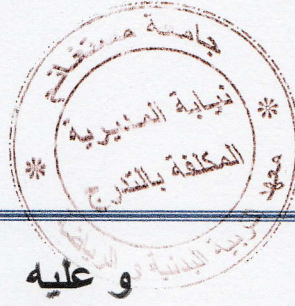 جامعة مستغانم
نيابة المديرية
المكلفة بالتدرج
معهد التربية البدنية و الرياضية
و عليه